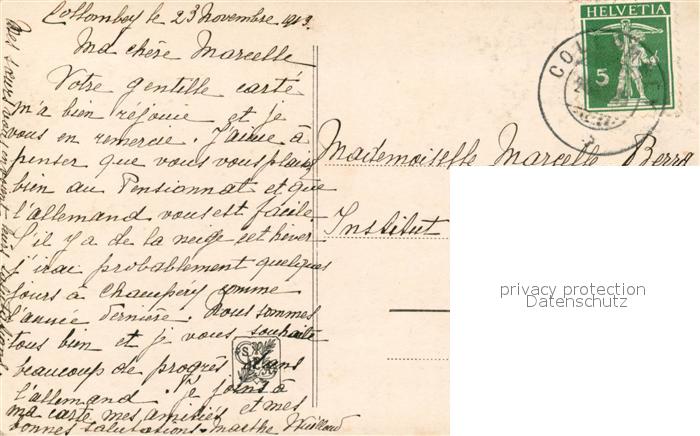 Collombey le 23 Novembre 1913.
Ma chère Marcelle
Votre gentille carte
m'a bien réjouie et je
vous en remercie. J'aime à
penser que vous vous plaisez
bien au Pensionnat et que
l'allemand vous est facile.
S'il y a de la neige cet hiver
j'irai probablement quelques
jours à Champéry comme
l'année dernière. Nous sommes
tous bien et je vous souhaite
beaucoup de progrès dans
l'allemand. Je joins à
ma carte mes amitiés et mes
bonnes salutations. Marthe
HELVETIA
5
Mademoiselle Marcelle Berra
Institut
privacy protection
Datenschutz